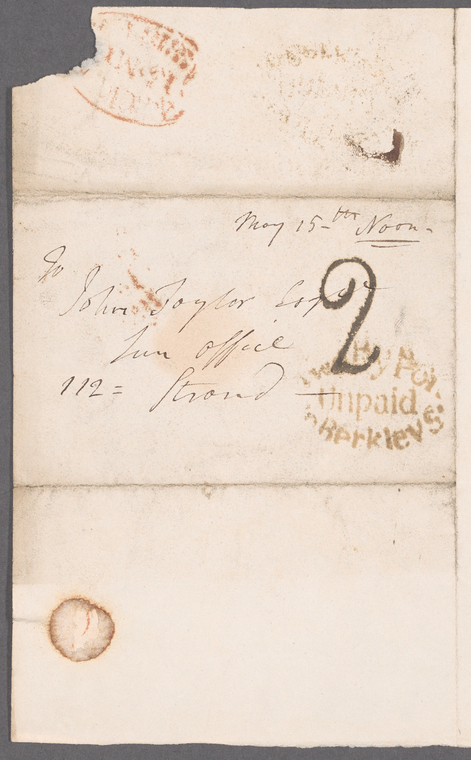 May 15-th Noon-
To
John Taylor Esqre
2
Sun Office
112= Strand
Two Py Post
Unpaid
Berkley S